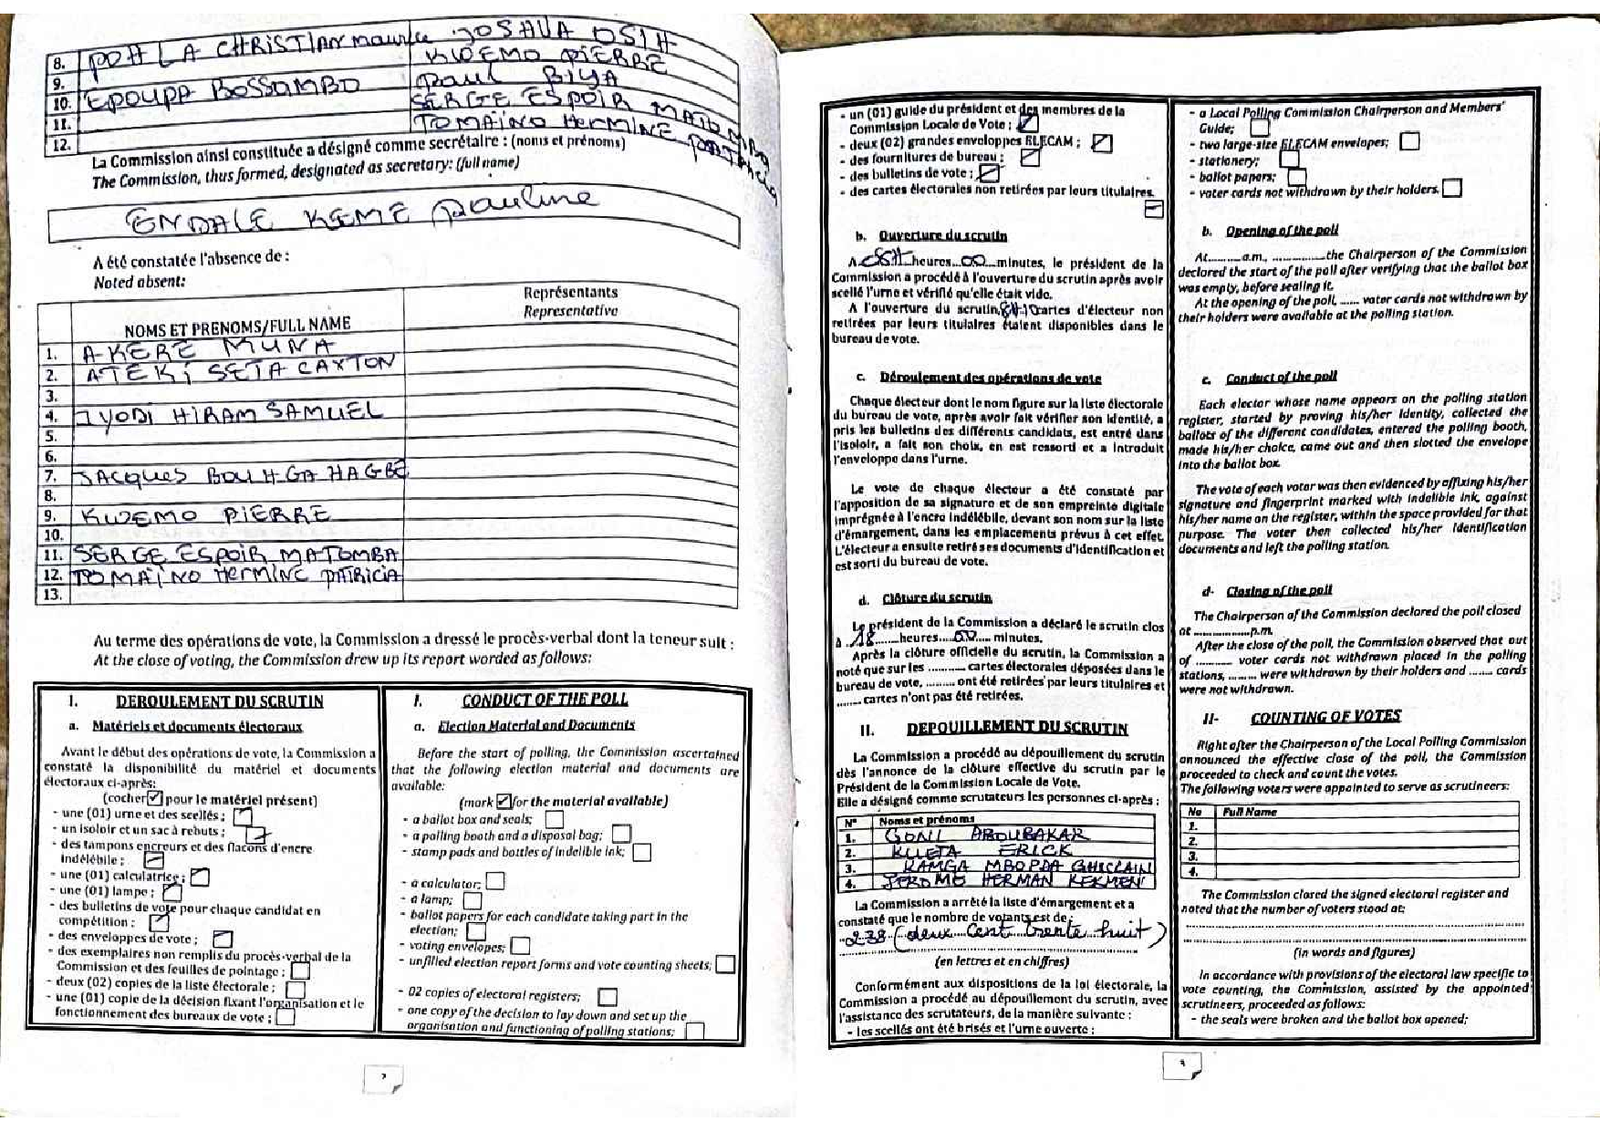 8. POH LA CHRISTIAN maurice JOSHUA OSIH
9. KWEMO PIERRE
10. EPOUPA BOSSAMBO Paul BIYA
11. SERGE ESPOIR MATOMBA
12. TOMAÏNO HERMINE PATRICIA
La Commission ainsi constituée a désigné comme secrétaire : (noms et prénoms)
The Commission, thus formed, designated as secretary: (full name)
ENDALE KEME Pauline
A été constatée l'absence de :
Noted absent:
NOMS ET PRENOMS/FULL NAME
Représentants
Representative
1. AKERE MUNA
2. ATEKI SETA CAXTON
3.
4. IYODI HIRAM SAMUEL
5.
6.
7. JACQUES BOUHGA HAGBE
8.
9. KWEMO PIERRE
10.
11. SERGE ESPOIR MATOMBA
12. TOMAÏNO HERMINE PATRICIA
13.
Au terme des opérations de vote, la Commission a dressé le procès-verbal dont la teneur suit :
At the close of voting, the Commission drew up its report worded as follows:
I. DEROULEMENT DU SCRUTIN
a. Matériels et documents électoraux
Avant le début des opérations de vote, la Commission a
constaté la disponibilité du matériel et documents
électoraux ci-après:
(cocher ☑ pour le matériel présent)
- une (01) urne et des scellés ;
- un isoloir et un sac à rebuts ;
- des tampons encreurs et des flacons d'encre
indélébile ;
- une (01) calculatrice ;
- une (01) lampe ;
- des bulletins de vote pour chaque candidat en
compétition ;
- des enveloppes de vote ;
- des exemplaires non remplis du procès-verbal de la
Commission et des feuilles de pointage ;
- deux (02) copies de la liste électorale ;
- une (01) copie de la décision fixant l'organisation et le
fonctionnement des bureaux de vote ;
I. CONDUCT OF THE POLL
a. Election Material and Documents
Before the start of polling, the Commission ascertained
that the following election material and documents are
available:
(mark ☑ for the material available)
- a ballot box and seals;
- a polling booth and a disposal bag;
- stamp pads and bottles of indelible ink;
- a calculator;
- a lamp;
- ballot papers for each candidate taking part in the
election;
- voting envelopes;
- unfilled election report forms and vote counting sheets;
- 02 copies of electoral registers;
- one copy of the decision to lay down and set up the
organisation and functioning of polling stations;
2
- un (01) guide du président et des membres de la
Commission Locale de Vote ;
- deux (02) grandes enveloppes ELECAM ;
- des fournitures de bureau ;
- des bulletins de vote ;
- des cartes électorales non retirées par leurs titulaires.
b. Ouverture du scrutin
A 08H heures 00 minutes, le président de la
Commission a procédé à l'ouverture du scrutin après avoir
scellé l'urne et vérifié qu'elle était vide.
A l'ouverture du scrutin, cartes d'électeur non
retirées par leurs titulaires étaient disponibles dans le
bureau de vote.
c. Déroulement des opérations de vote
Chaque électeur dont le nom figure sur la liste électorale
du bureau de vote, après avoir fait vérifier son identité, a
pris les bulletins des différents candidats, est entré dans
l'isoloir, a fait son choix, en est ressorti et a introduit
l'enveloppe dans l'urne.
Le vote de chaque électeur a été constaté par
l'apposition de sa signature et de son empreinte digitale
imprégnée à l'encre indélébile, devant son nom sur la liste
d'émargement, dans les emplacements prévus à cet effet.
L'électeur a ensuite retiré ses documents d'identification et
est sorti du bureau de vote.
d. Clôture du scrutin
Le président de la Commission a déclaré le scrutin clos
à 18 heures 00 minutes.
Après la clôture officielle du scrutin, la Commission a
noté que sur les .......... cartes électorales déposées dans le
bureau de vote, ......... ont été retirées par leurs titulaires et
....... cartes n'ont pas été retirées.
II. DEPOUILLEMENT DU SCRUTIN
La Commission a procédé au dépouillement du scrutin
dès l'annonce de la clôture effective du scrutin par le
Président de la Commission Locale de Vote.
Elle a désigné comme scrutateurs les personnes ci-après :
N° Noms et prénoms
1. GONI ABOUBAKAR
2. KUETA ERICK
3. KAMGA MBOPDA GHISLAIN
4. JEROME HERMAN KEKMENI
La Commission a arrêté la liste d'émargement et a
constaté que le nombre de votants est de:
238 (deux cent trente huit)
(en lettres et en chiffres)
Conformément aux dispositions de la loi électorale, la
Commission a procédé au dépouillement du scrutin, avec
l'assistance des scrutateurs, de la manière suivante :
- les scellés ont été brisés et l'urne ouverte ;
- a Local Polling Commission Chairperson and Members'
Guide;
- two large-size ELECAM envelopes;
- stationery;
- ballot papers;
- voter cards not withdrawn by their holders.
b. Opening of the poll
At..........a.m., ..............the Chairperson of the Commission
declared the start of the poll after verifying that the ballot box
was empty, before sealing it.
At the opening of the poll, ...... voter cards not withdrawn by
their holders were available at the polling station.
c. Conduct of the poll
Each elector whose name appears on the polling station
register, started by proving his/her identity, collected the
ballots of the different candidates, entered the polling booth,
made his/her choice, came out and then slotted the envelope
into the ballot box.
The vote of each voter was then evidenced by affixing his/her
signature and fingerprint marked with indelible ink, against
his/her name on the register, within the space provided for that
purpose. The voter then collected his/her identification
documents and left the polling station.
d- Closing of the poll
The Chairperson of the Commission declared the poll closed
at ..................p.m.
After the close of the poll, the Commission observed that out
of .......... voter cards not withdrawn placed in the polling
stations, ........ were withdrawn by their holders and ....... cards
were not withdrawn.
II- COUNTING OF VOTES
Right after the Chairperson of the Local Polling Commission
announced the effective close of the poll, the Commission
proceeded to check and count the votes.
The following voters were appointed to serve as scrutineers:
No Full Name
1.
2.
3.
4.
The Commission closed the signed electoral register and
noted that the number of voters stood at:
(in words and figures)
In accordance with provisions of the electoral law specific to
vote counting, the Commission, assisted by the appointed
scrutineers, proceeded as follows:
- the seals were broken and the ballot box opened;
3